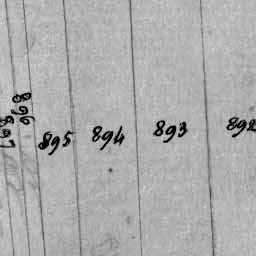 897
896
895
894
893
892